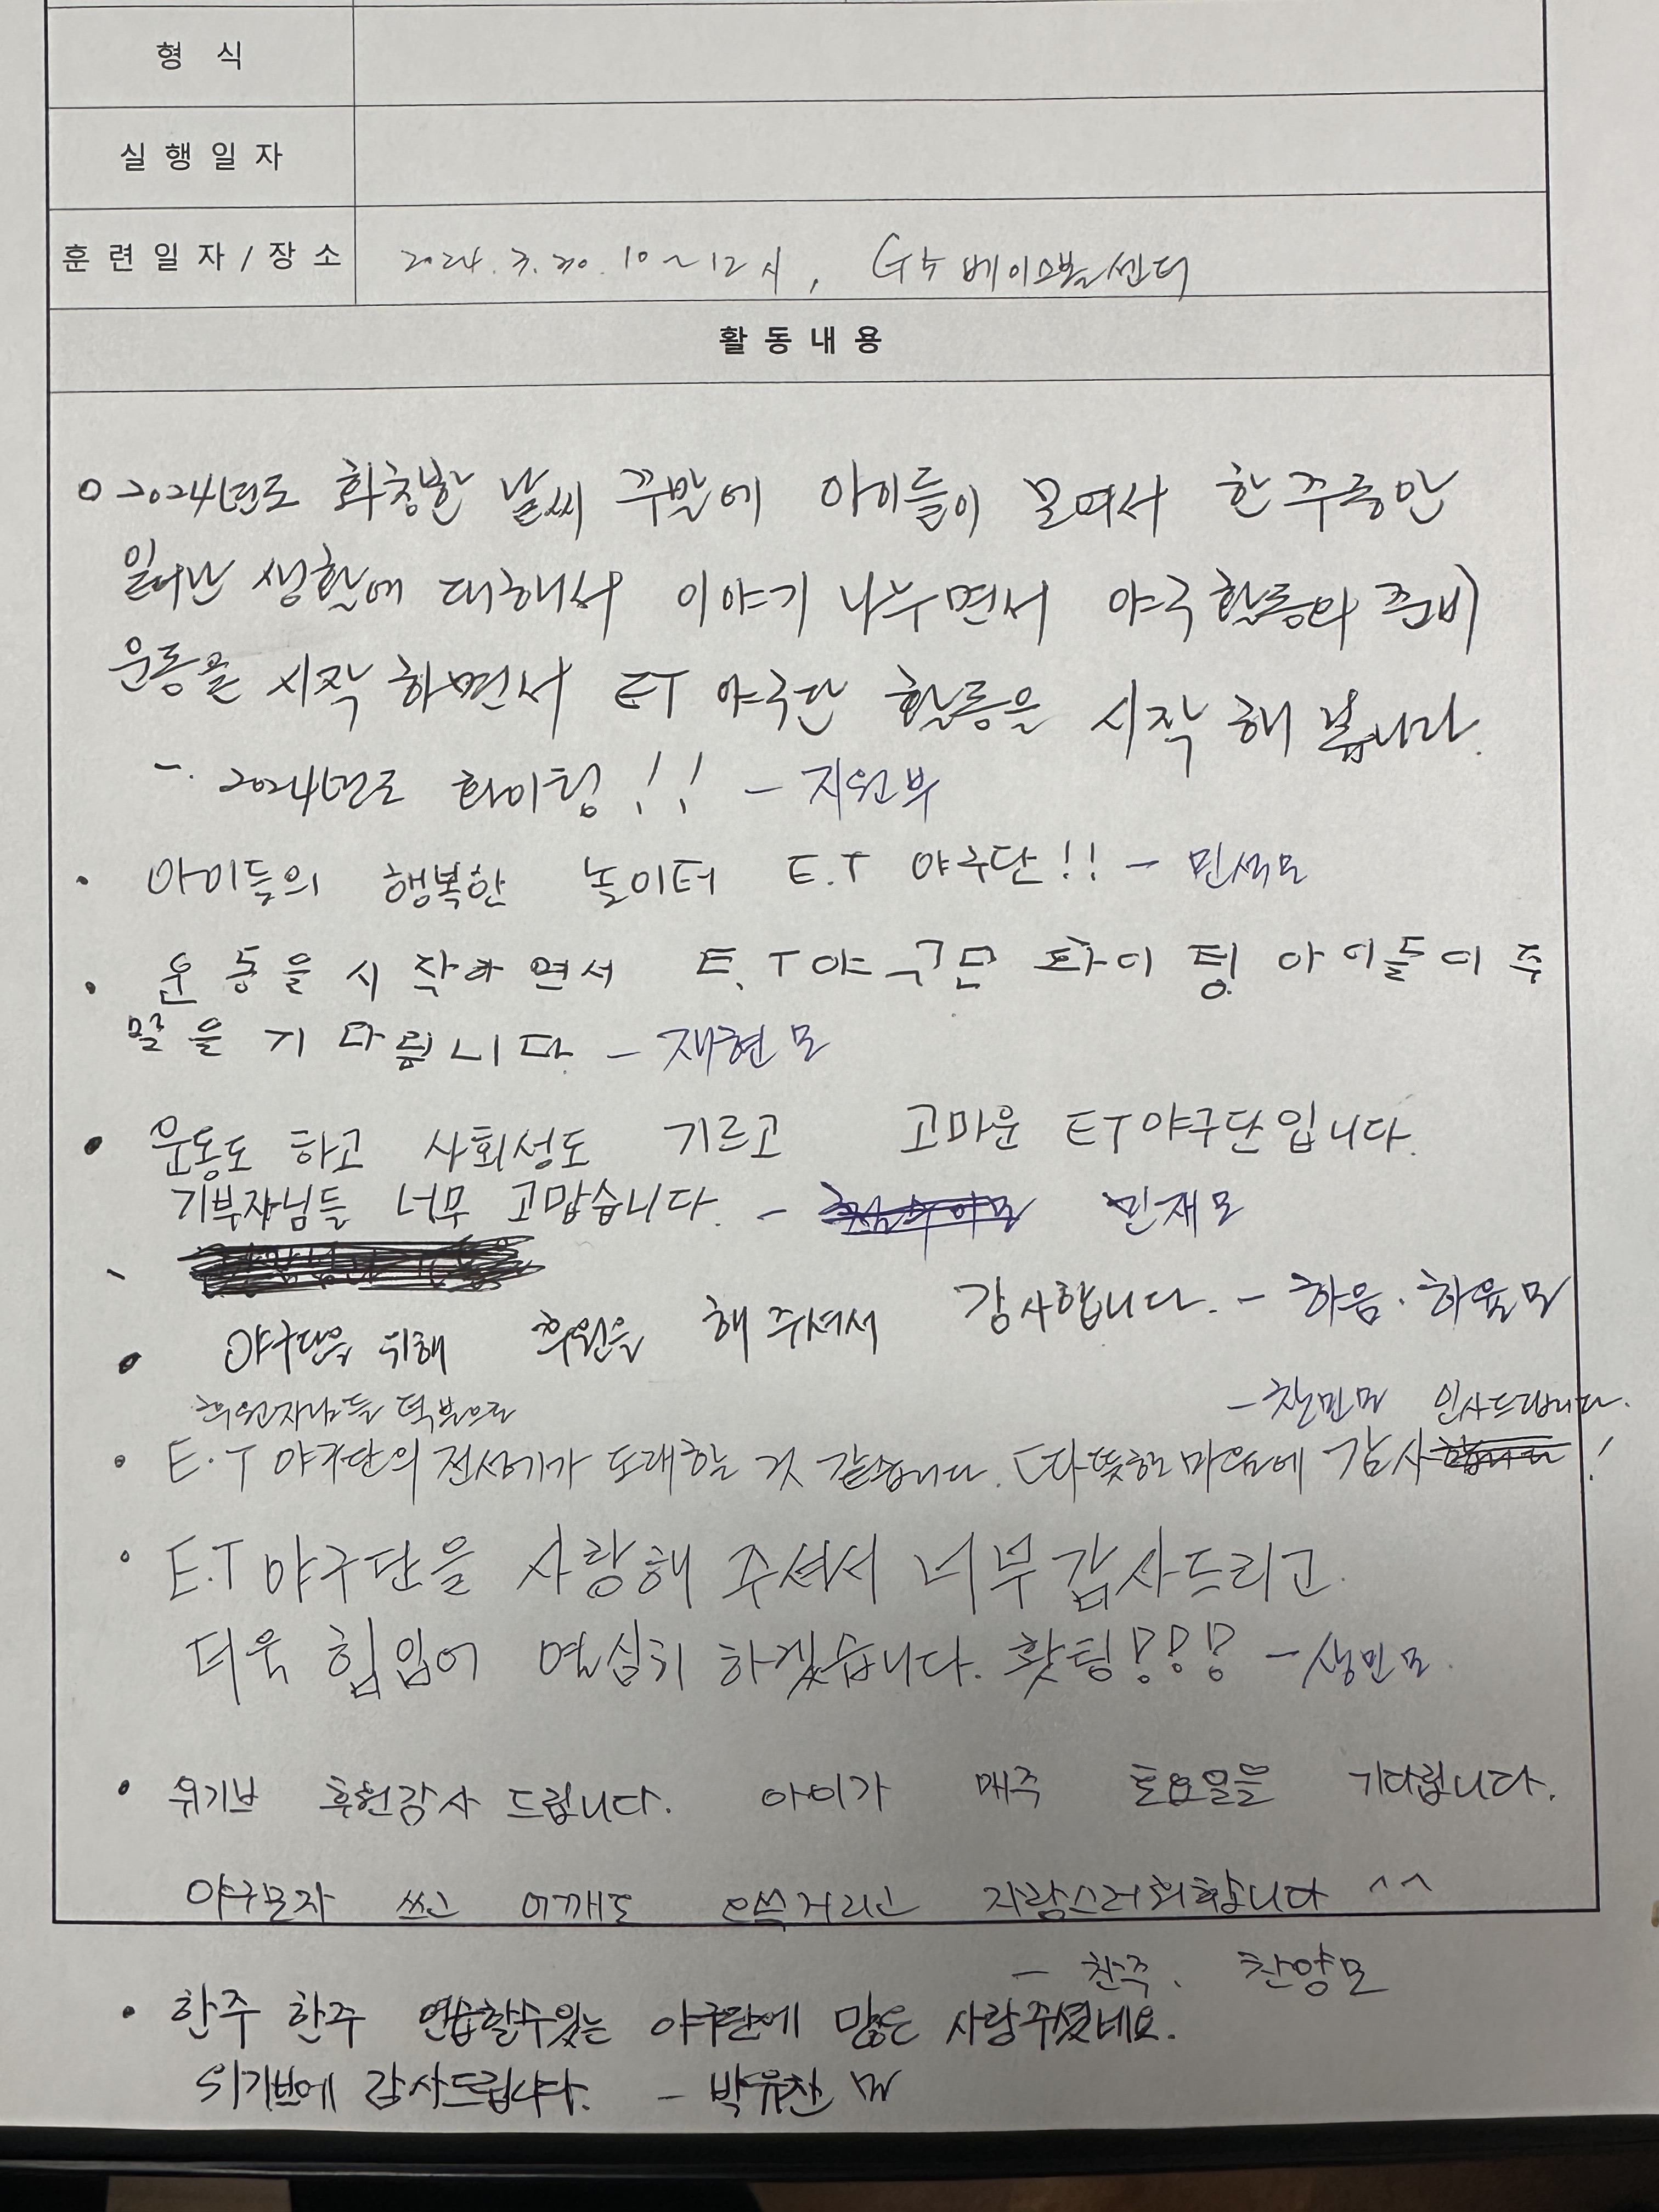 형 식
실 행 일 자
훈 련 일 자 / 장 소 2024. 3. 30. 10~12시, 베이스볼센터
활 동 내 용
○ 2024년도 화창한 날씨 주말에 아이들이 모여서 한 주동안
일어난 생활에 대해서 이야기 나누면서 야구활동의 준비
운동을 시작 하면서 ET 야구단 활동을 시작 해 봅니다.
- 2024년도 화이팅!! - 지원부
• 아이들의 행복한 놀이터 E.T 야구단!! - 민석모
• 운동을 시작하면서 E.T야구단 화이팅 아이들이 주
말을 기다립니다 - 재현모
• 운동도 하고 사회성도 기르고 고마운 ET야구단입니다.
기부자님들 너무 고맙습니다. - 민재모
• 야구단을 위해 후원을 해 주셔서 감사합니다. - 하음. 하율모
후원자님들 덕분으로 - 찬민모 인사드립니다.
• E.T 야구단의 전성기가 도래할 것 같습니다. 따뜻한 마음에 감사합니다!
• E.T 야구단을 사랑해 주셔서 너무 감사드리고
더욱 힘입어 열심히 하겠습니다. 홧팅!!! - 성민모.
• 위기브 후원감사 드립니다. 아이가 매주 토요일을 기다립니다.
야구모자 쓰고 어깨도 으쓱거리고 자랑스러워합니다 ^^
- 찬주. 찬양모
• 한주 한주 연습할수있는 야구단에 많은 사랑주셨네요.
위기브에 감사드립니다. - 박유찬 모